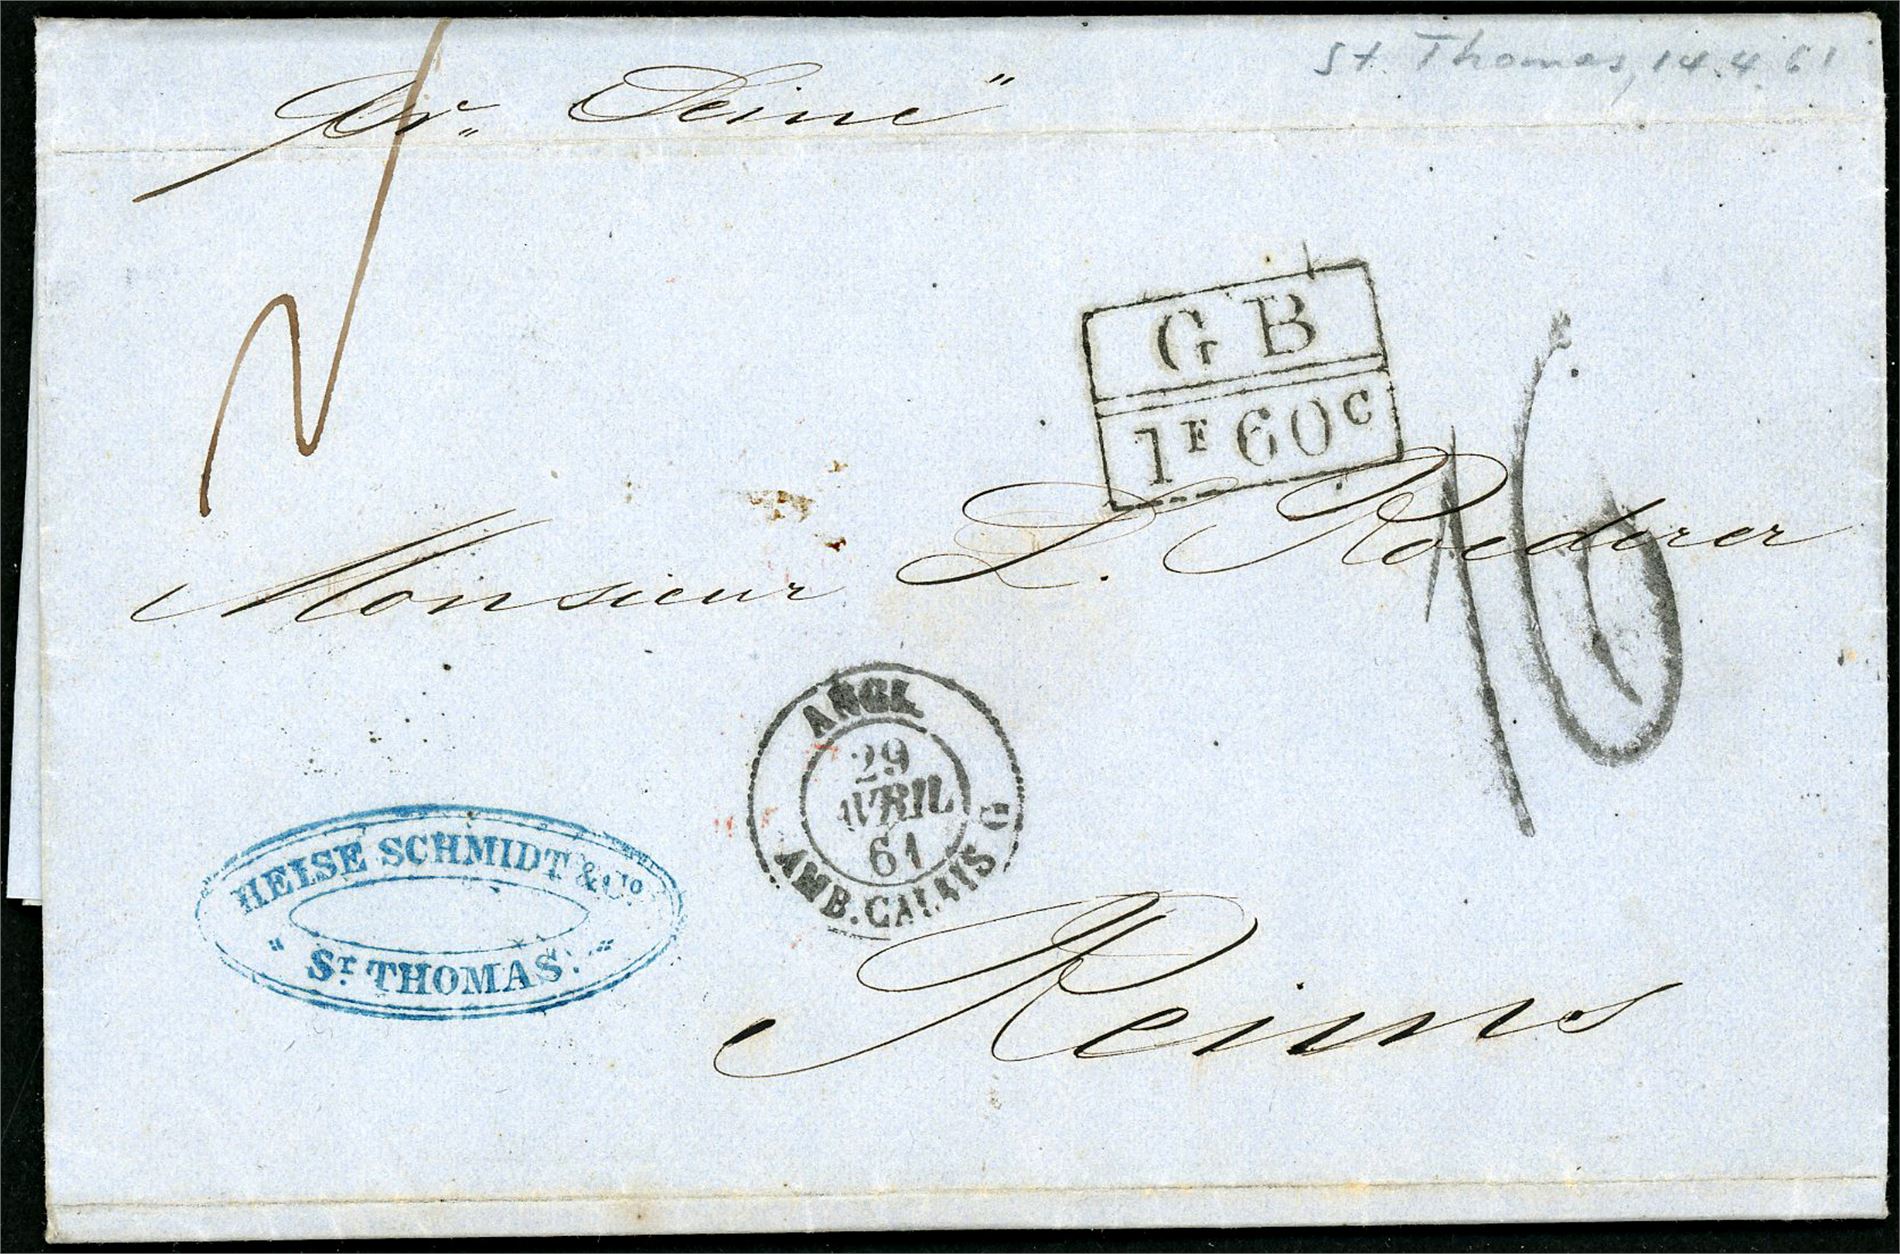 St. Thomas, 14.4 61
pr. "Seine"
GB
1F60c
Monsieur L. Roederer
16
ANGL.
29
AVRIL
61
AMB. CALAIS G
HEISE SCHMIDT & Co
" ST THOMAS. "
Reims